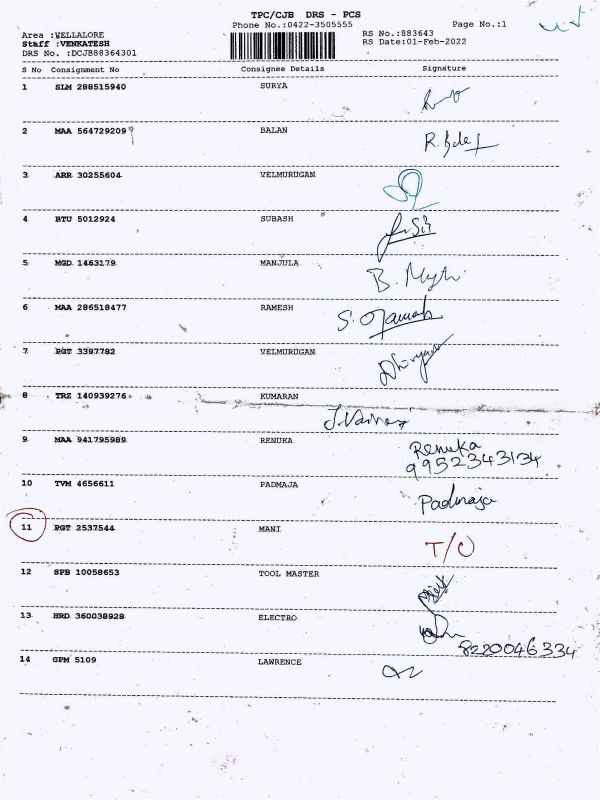 TPC/CJB DRS - PCS
Phone No.:0422-3505555 Page No.:1
Area :VELLALORE RS No.:883643
Staff :VENKATESH RS Date:01-Feb-2022
DRS No. :DCJB88364301
S No Consignment No Consignee Details Signature
1 SLM 288515940 SURYA
2 MAA 564729209 BALAN
3 ARR 30255604 VELMURUGAN
4 BTU 5012924 SUBASH
5 MGD 1463179 MANJULA
B.
6 MAA 286518477 RAMESH
S.
7 PGT 3397782 VELMURUGAN
8 TRZ 140939276 KUMARAN
9 MAA 941795989 RENUKA
Renuka
9952343134
10 TVM 4656611 PADMAJA
Padmaja
11 PGT 2537544 MANI
T/O
12 SPB 10058653 TOOL MASTER
13 HRD 360038928 ELECTRO
8220046334
14 GPM 5109 LAWRENCE